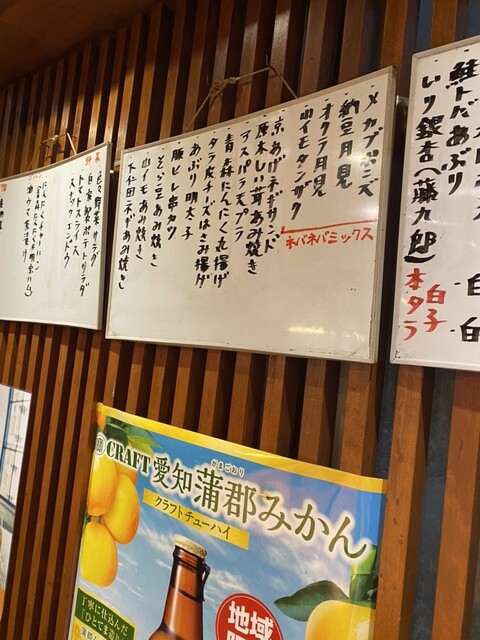 鮭トバあぶり
いり銀杏(藤九郎)
白子
本タラ
メカブポン酢
納豆月見
オクラ月見
山イモタンザク
ネバネバミックス
京あげネギサンド
原木しい茸あみ焼き
アスパラ天プラ
青森にんにく丸揚げ
タラ皮チーズはさみ揚げ
あぶり明太子
豚ヒレ串カツ
そら豆あみ焼き
山イモあみ焼き
下仁田ネギあみ焼き
野菜
色々野菜サラダ
自家製ポテトサラダ
トマトスライス
スナックエンドウ
CRAFT 愛知蒲郡みかん
がまごおり
クラフトチューハイ
丁寧に仕込んだ
「ひとてま造
地域